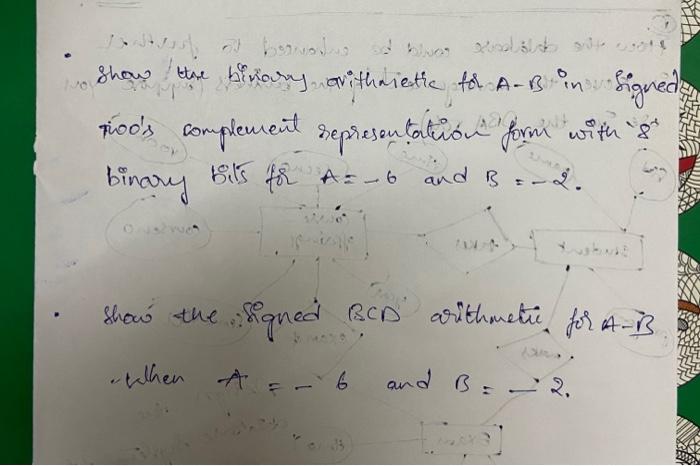 • Show the binary arithmetic for A-B in Signed
Two's complement representation form with 8
binary bits for A = -6 and B = -2.
• Show the Signed BCD arithmetic for A-B
when A = - 6 and B = - 2.